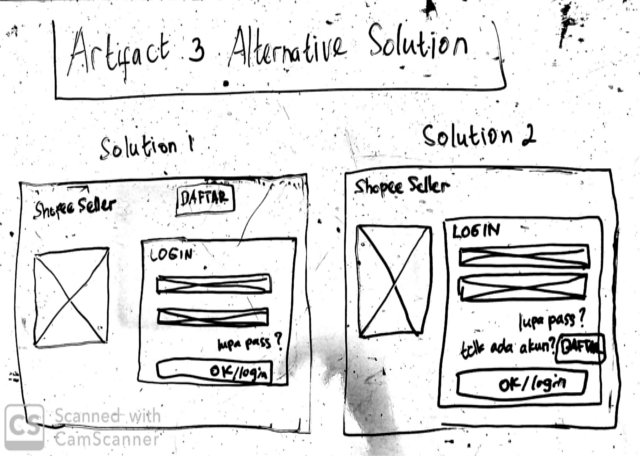 Artifact 3 Alternative Solution
Solution 1
Shopee Seller
DAFTAR
LOGIN
lupa pass?
OK/login
Solution 2
Shopee Seller
LOGIN
lupa pass?
tdk ada akun? DAFTAR
OK/login
CS Scanned with
CamScanner